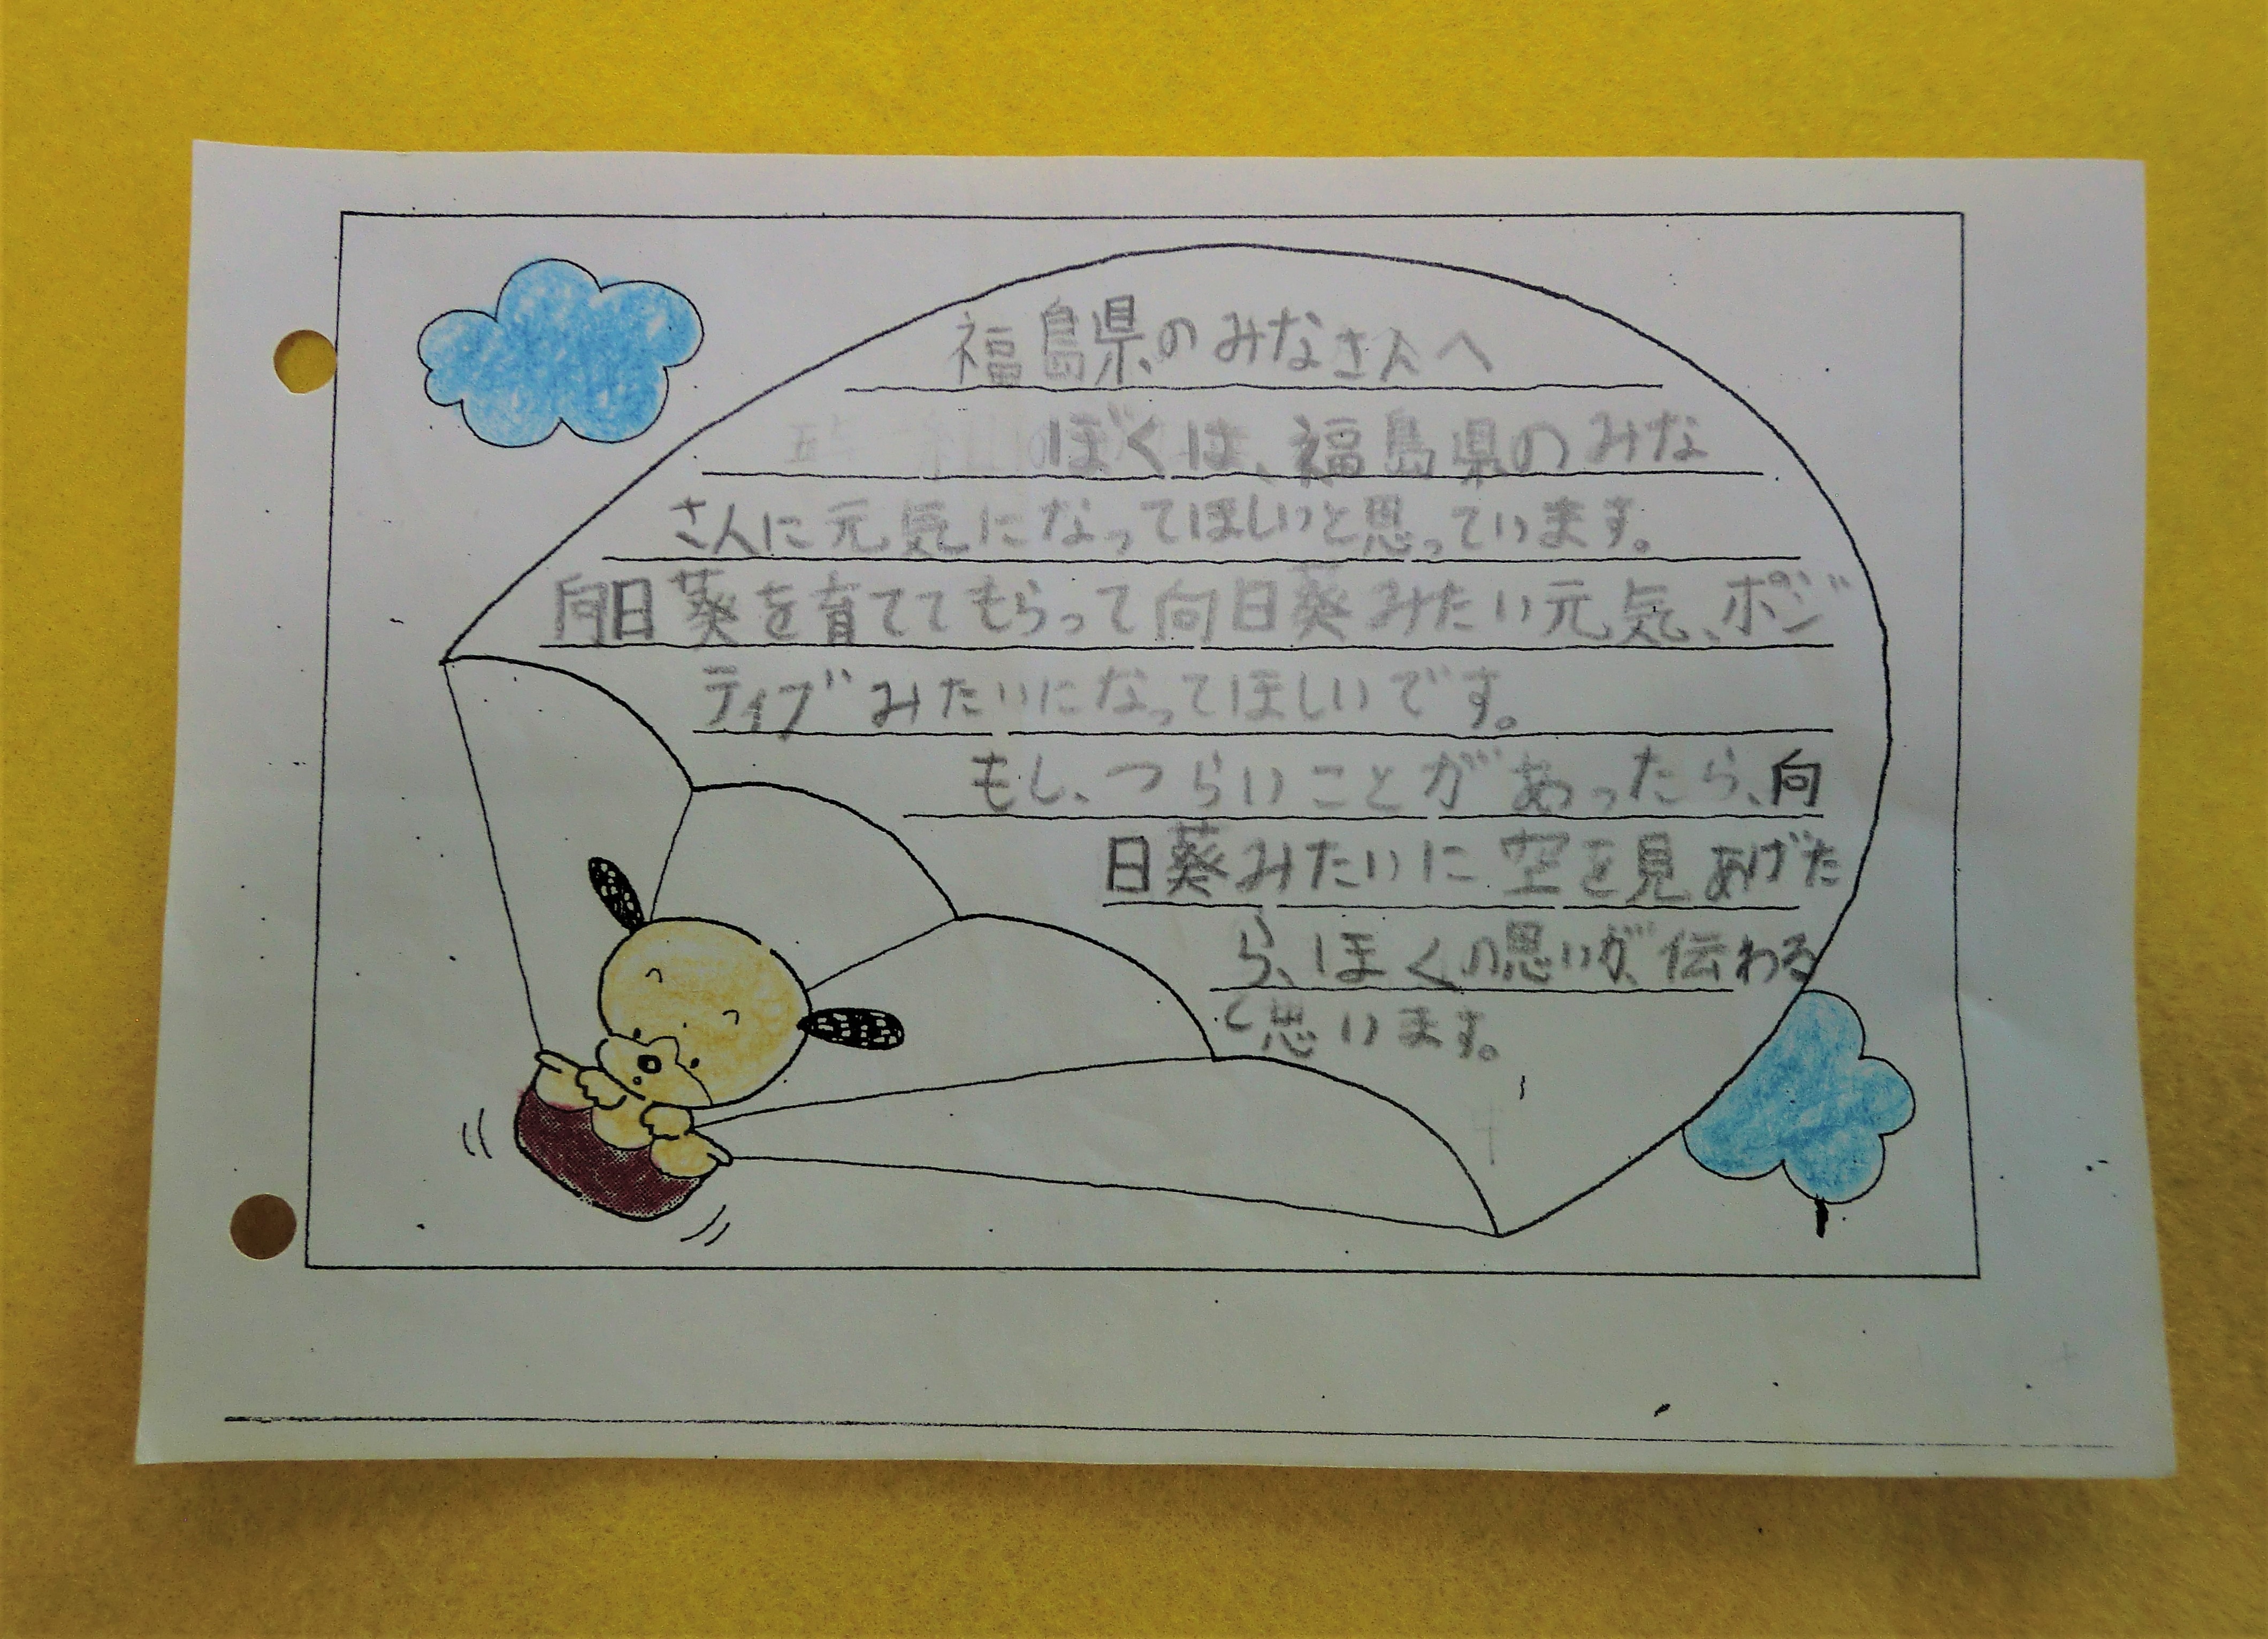 福島県のみなさんへ
ぼくは、福島県のみな
さんに元気になってほしいと思っています。
向日葵を育ててもらって向日葵みたい元気、ポジ
ティブみたいになってほしいです。
もし、つらいことがあったら、向
日葵みたいに空を見あげた
ら、ぼくの思いが、伝わる
と思います。